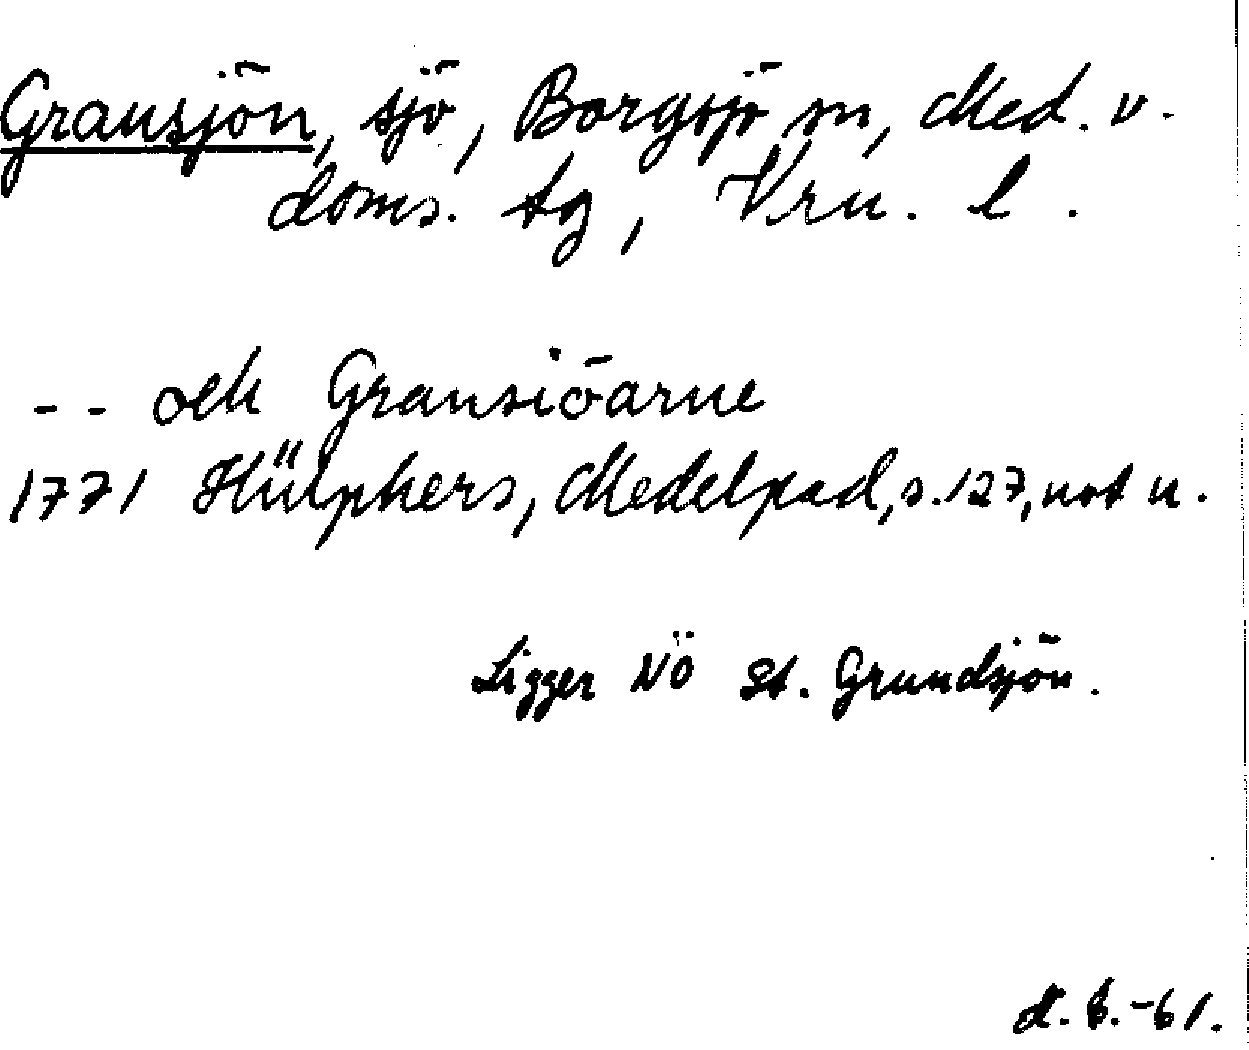 Gransjön, sjö, Borgsjö sn, Med. v.
doms. tg, Vrn. l.
-- och Gransiöarne
1771 Hülphers, Medelpad, s. 127, not u.
Ligger NÖ St. Grundsjön.
-61.